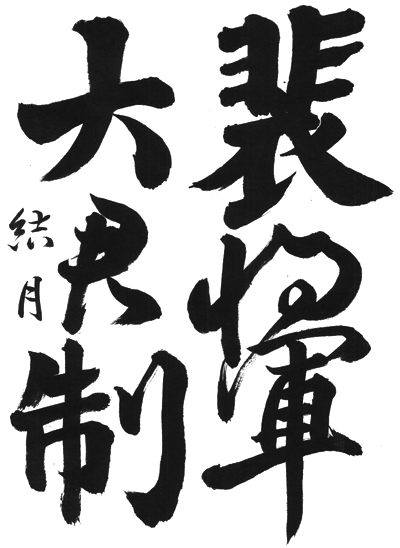 裴將軍
大君制
結月